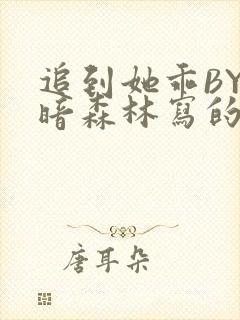 追到她乖BY
暗森林寫的
唐耳朵